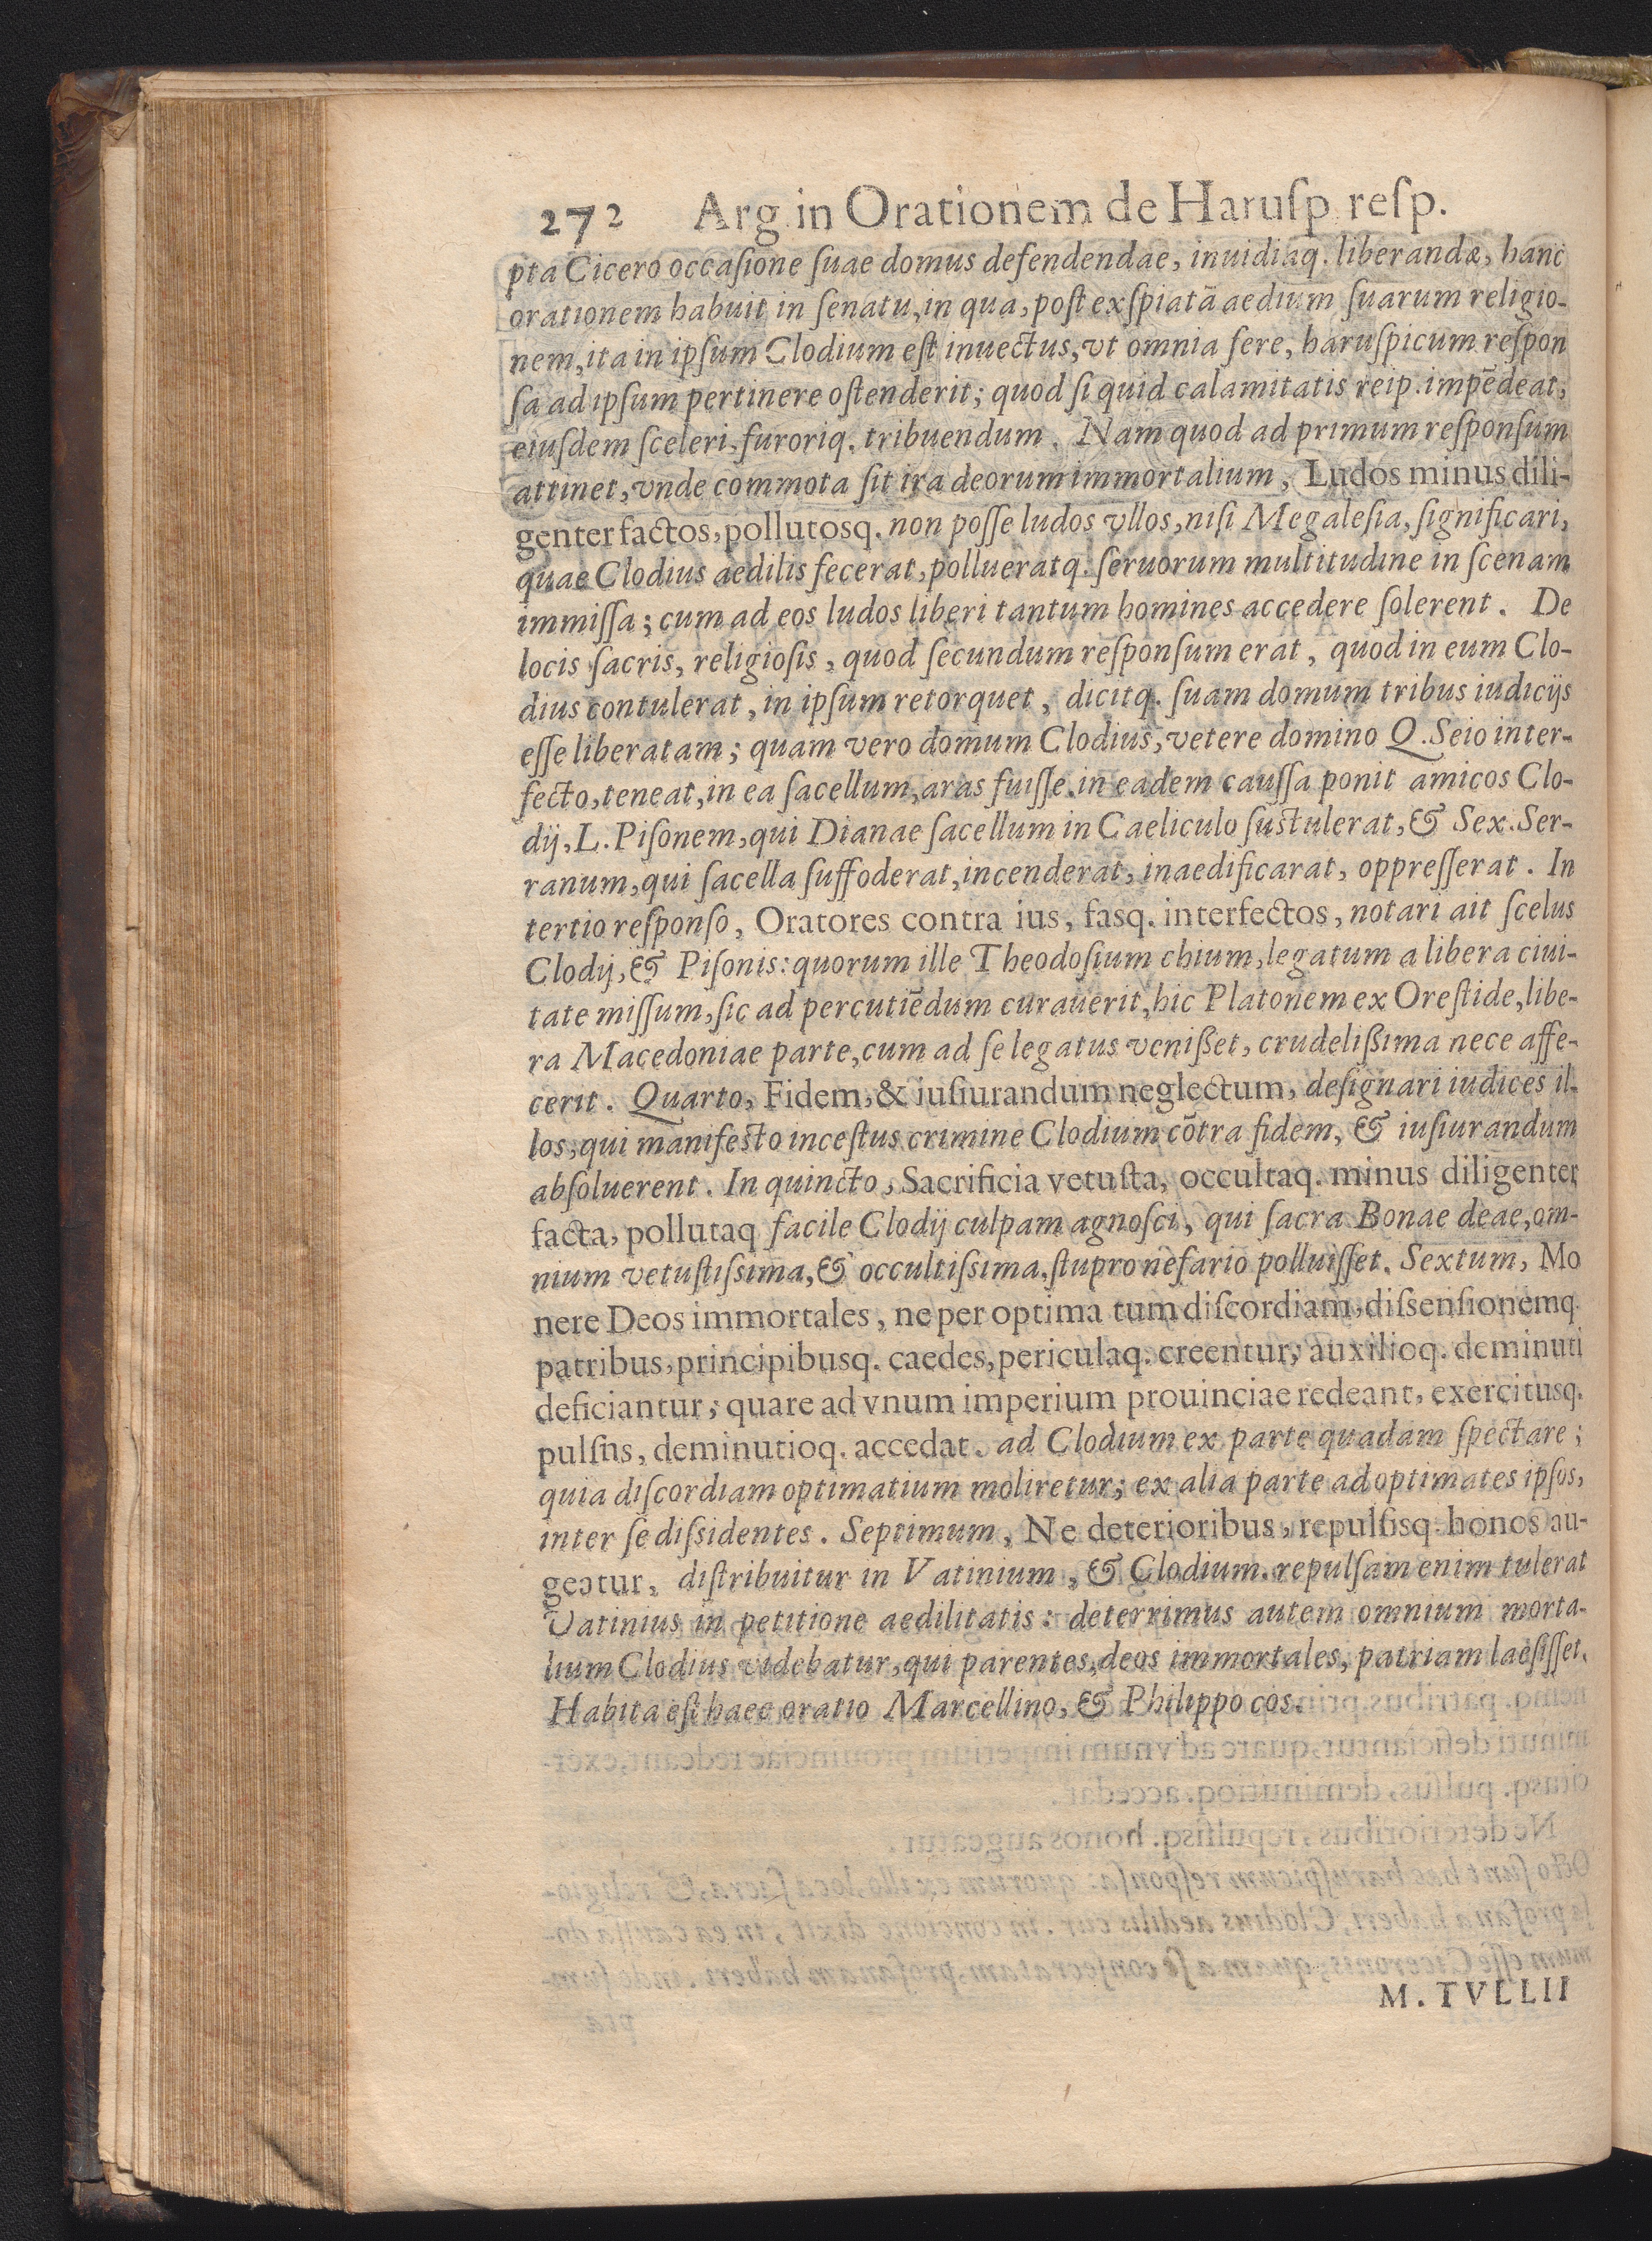 272 Arg in Orationem de Haruſp reſp.
pta Cicero occaſione ſuae domus defendendae, inuidiaq. liberandæ, hanc
orationem habuit in ſenatu, in qua, poſt exſpiatā aedium ſuarum religio-
nem, ita in ipſum Clodium eſt inuectus, vt omnia fere, haruſpicum reſpon
ſa ad ipſum pertinere oſtenderit; quod ſi quid calamitatis reip. impēdeat,
eiuſdem ſceleri, furoriq. tribuendum. Nam quod ad primum reſponſum
attinet, vnde commota ſit ira deorum immortalium, Ludos minus dili-
genter factos, pollutosq. non poſſe ludos vllos, niſi Megaleſia, ſignificari,
quae Clodius aedilis fecerat, pollueratq. ſeruorum multitudine in ſcenam
immiſſa; cum ad eos ludos liberi tantum homines accedere ſolerent. De
locis ſacris, religioſis, quod ſecundum reſponſum erat, quod in eum Clo-
dius contulerat, in ipſum retorquet, dicitq. ſuam domum tribus iudicijs
eſſe liberatam; quam vero domum Clodius, vetere domino Q. Seio inter-
fecto, teneat, in ea ſacellum, aras fuiſſe. in eadem cauſſa ponit amicos Clo-
dij, L. Piſonem, qui Dianae ſacellum in Caeliculo ſustulerat, & Sex. Ser-
ranum, qui ſacella ſuffoderat, incenderat, inaedificarat, oppreſſerat. In
tertio reſponſo, Oratores contra ius, fasq. interfectos, notari ait ſcelus
Clodij, & Piſonis: quorum ille Theodoſium chium, legatum a libera ciui-
tate miſſum, ſic ad percutiēdum curauerit, hic Platonem ex Oreſtide, libe-
ra Macedoniae parte, cum ad ſe legatus venißet, crudelißima nece affe-
cerit. Quarto, Fidem, & iuſiurandum neglectum, deſignari iudices il-
los, qui manifesto inceſtus crimine Clodium cōtra fidem, & iuſiurandum
abſoluerent. In quincto, Sacrificia vetuſta, occultaq. minus diligenter
facta, pollutaq facile Clodij culpam agnoſci, qui ſacra Bonae deae, om-
nium vetuſtiſsima, & occultiſsima, ſtupro nefario polluiſſet. Sextum, Mo
nere Deos immortales, ne per optima tum diſcordiam, diſsenſionemq.
patribus, principibusq. caedes, periculaq. creentur, auxilioq. deminuti
deficiantur; quare ad vnum imperium prouinciae redeant, exercitusq.
pulſns, deminutioq. accedat. ad Clodium ex parte quadam ſpectare;
quia diſcordiam optimatium moliretur; ex alia parte ad optimates ipſos,
inter ſe diſsidentes. Septimum, Ne deterioribus, repulſisq. honos au-
geatur, diſtribuitur in Vatinium, & Clodium. repulſam enim tulerat
Vatinius in petitione aedilitatis: deterrimus autem omnium morta-
lium Clodius videbatur, qui parentes, deos immortales, patriam laeſiſſet.
Habita eſt haec oratio Marcellino, & Philippo cos.
M. TVLLII